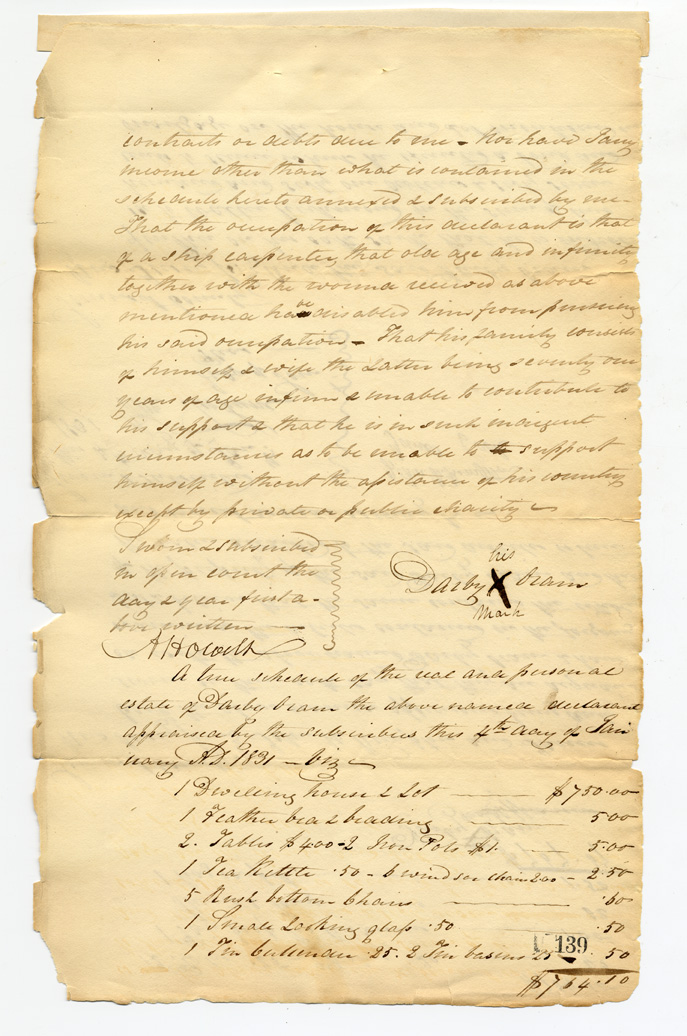 contracts or debts due to me - Nor have I any
income other than what is contained in the
schedule hereto annexed & subscribed by me -
That the occupation of this declarant is that
of a ship carpenter, that old age and infirmity
together with the wound received as above
mentioned have disabled him from pursuing
his said occupation - That his family consists
of himself & wife the latter being seventy one
years of age infirm & unable to contribute to
his support & that he is in such indigent
circumstances as to be unable to support
himself without the assistance of his country
except by private or public charity
Sworn & subscribed
in open court the
day & year first a-
bove written
his
Darby X Oram
Mark
A Howell
A true schedule of the real and personal
estate of Darby Oram the above named declarant
appraised by the subscribers this 4th day of Jan
uary A.D. 1831 - Viz
1 Dwelling house & Lot $750.00
1 Feather bed & bedding 5.00
2. Tables $4.00 - 2 Iron Pots $1. 5.00
1 Tea Kettle .50 - 6 windsor chairs 2.00 - 2.50
5 Rush bottom Chairs .60
1 Small Looking glass .50 .50
1 Tin Cullender .25. 2 Tin basins 25 .50
139
$764.10